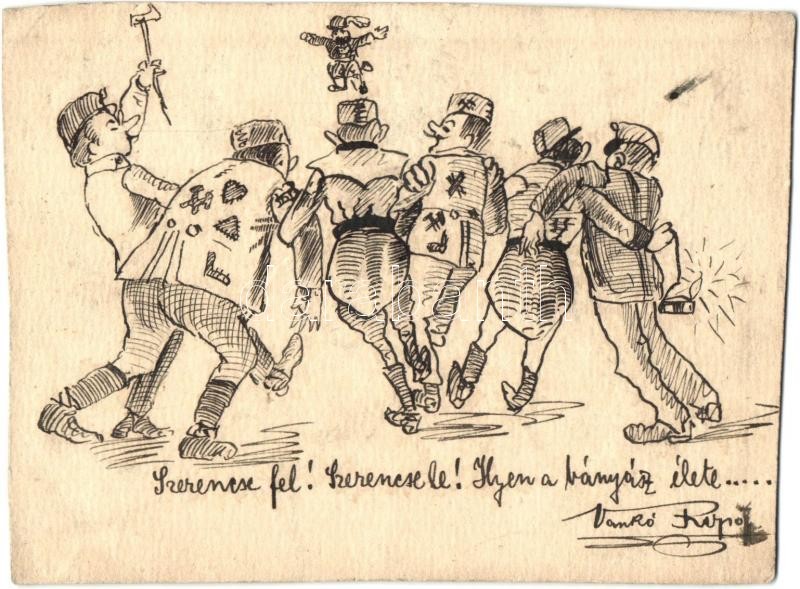 Szerencse fel! Szerencse le! Ilyen a bányász élete.....
Vankó